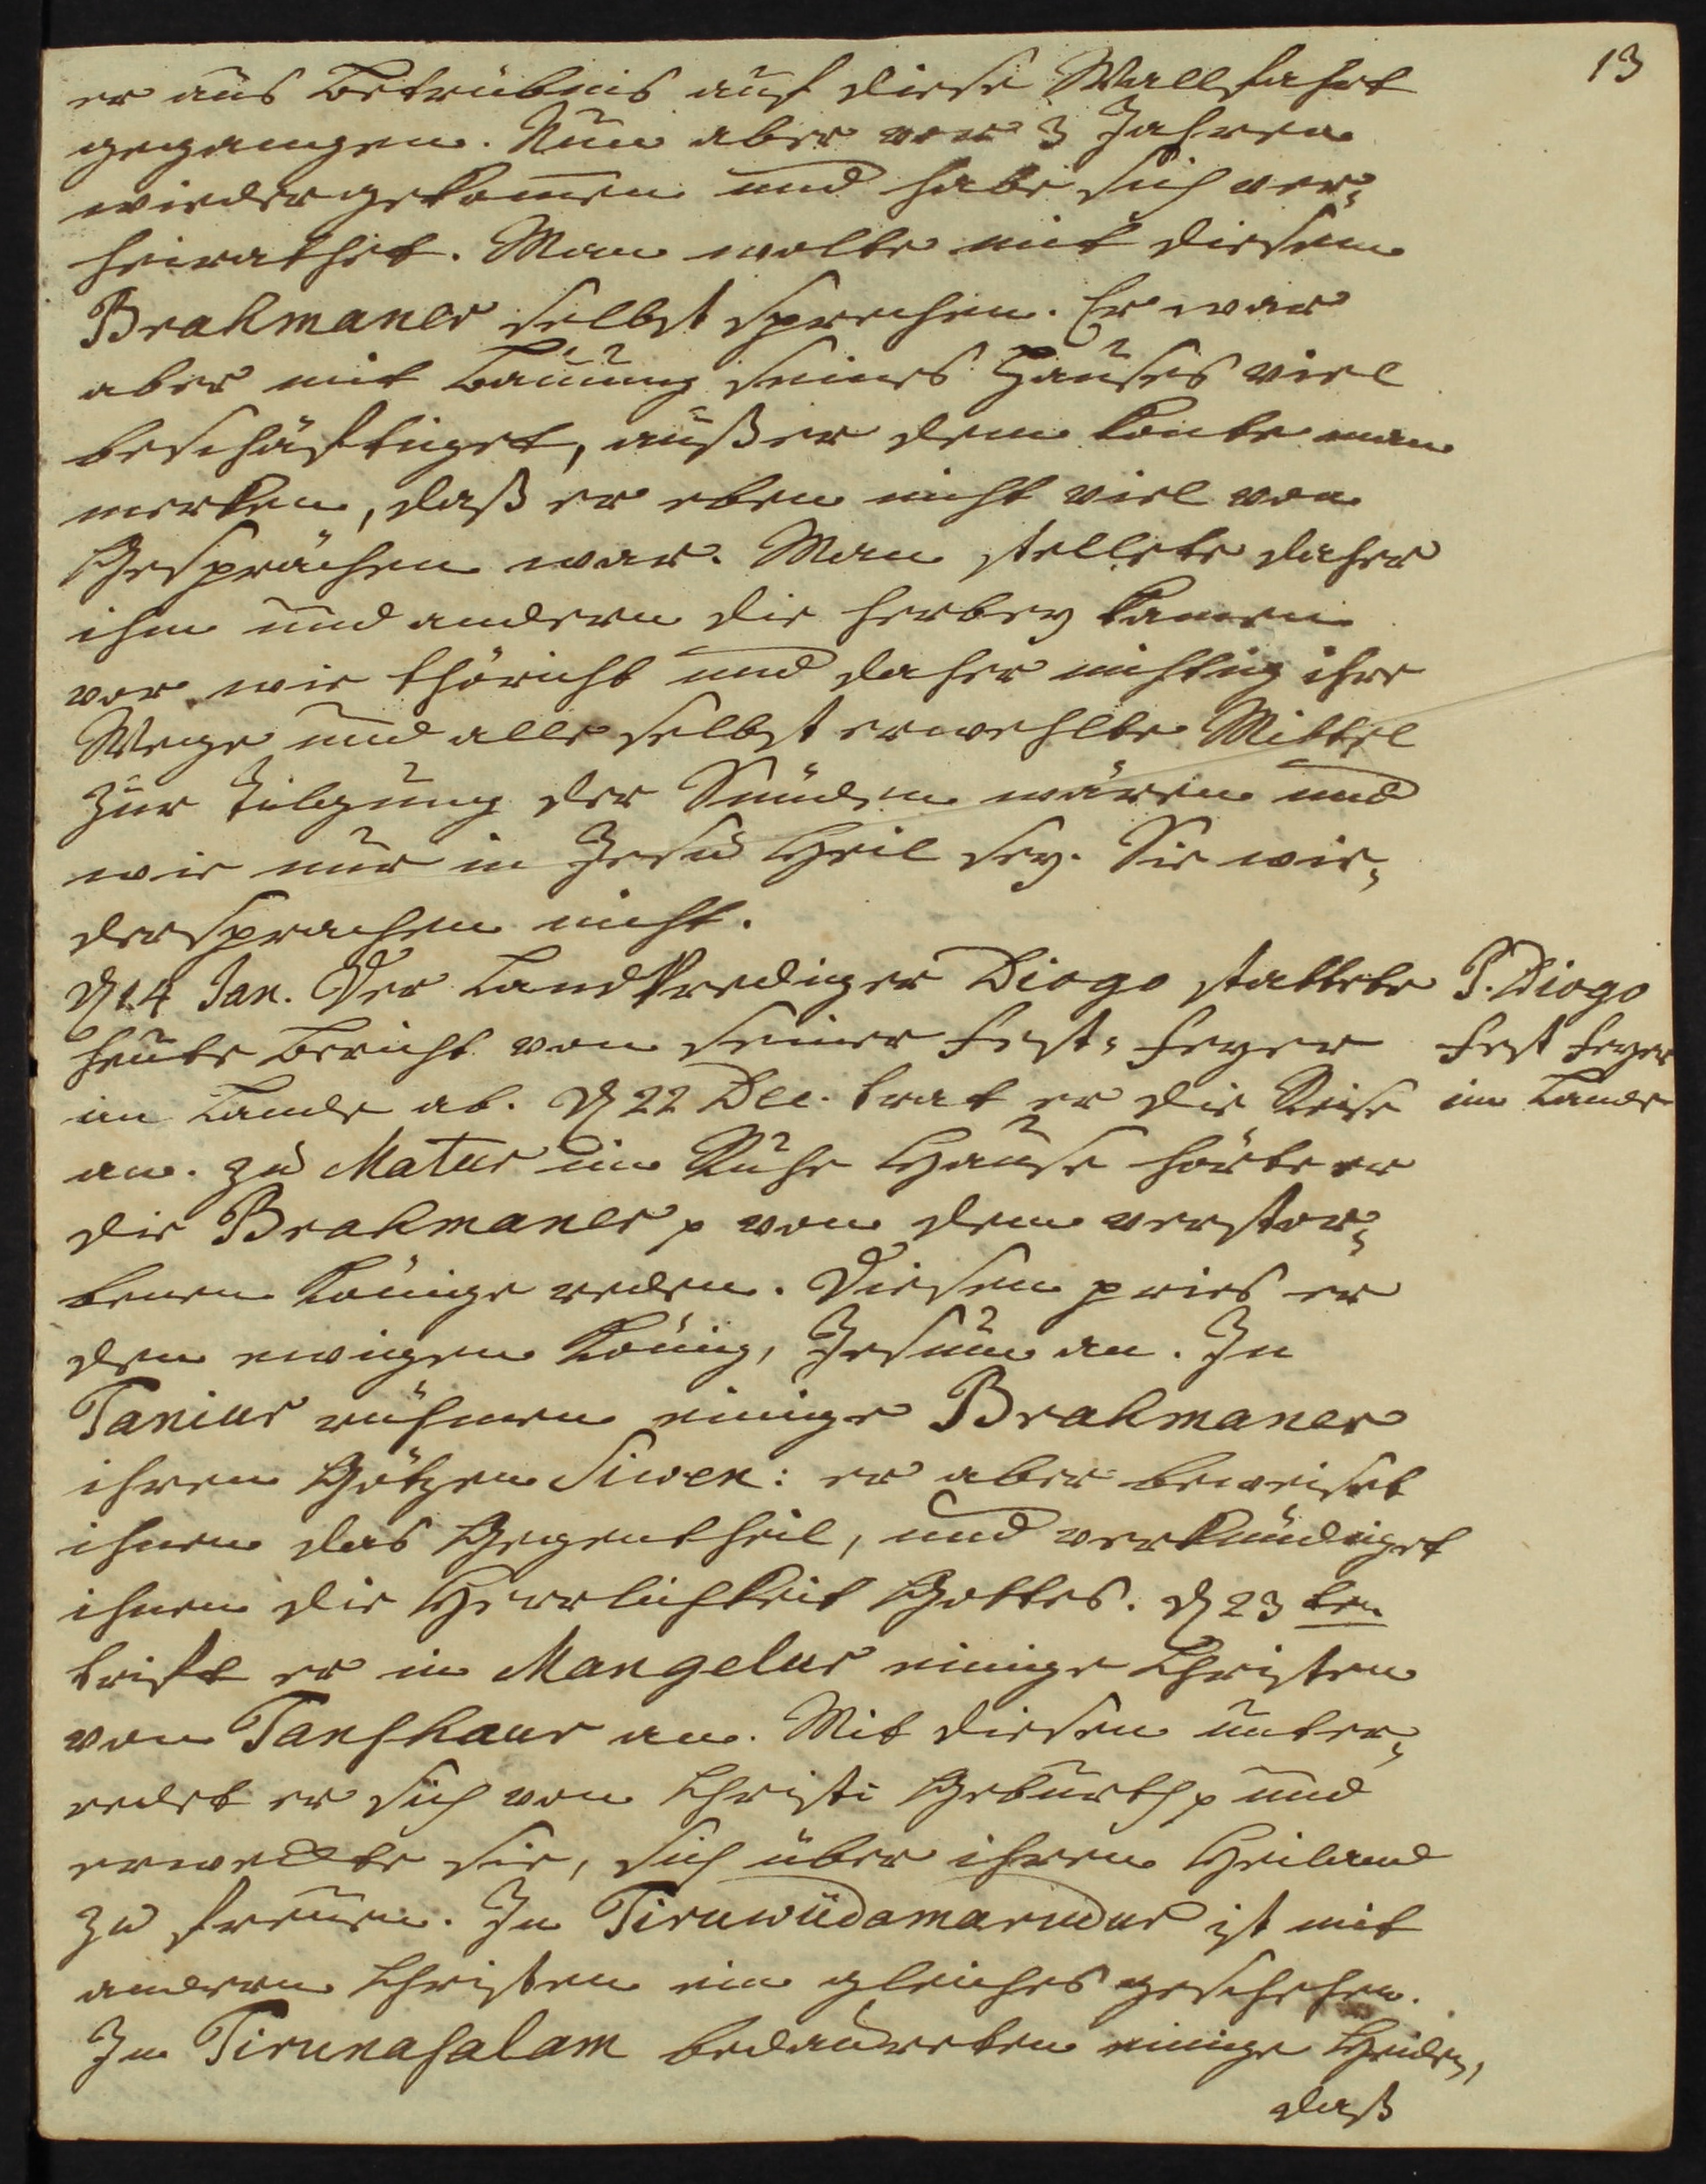 13
er aus Betrübnis auf diese Wallfahrt
gegangen. Nun aber vor 3 Jahren
wiedergekom̄en und habe sich ver-
heirathet. Man wolte mit diesem
Brahmaner selbst sprechen. Er war
aber mit Bauung seines Hauses viel
beschäftiget, außer dem konte man
merken, daß er eben nicht viel von
Gesprächen war. Man stellete daher
ihm und andern die herbey kamen
vor, wie thöricht und daher nichtig ihre
Wege und alle selbst erwehlte Mittel
zur Tilgung der Sünden wären und
wie nur in Jesu Heil sey. Sie wie-
dersprachen nicht.
D 14 Jan. Der LandPrediger Diogo stattete
heute Bericht von seiner Fest-Feyer
im Lande ab. D 22 Dec. trat er die Reise
an. Zu Matur im Ruhe Hause hörte er
die Brahmaner p von dem verstor-
benen Könige reden. Diesen pries er
den ewigen König, Jesum an. In
Taniur rühmen einige Brahmaner
ihren Götzen Siwen: er aber beweiset
ihnen das Gegentheil, und verkündiget
ihnen die Herrlichkeit Gottes. D 23 ten
trift er in Mangelur einige Christen
von Tanshaur an. Mit diesen unter-
redet er sich von Christi Geburth p und
erweckte sie, sich über ihren Heiland
zu freuen. In Tiruwüdamarudur ist mit
anderen Christen ein gleiches geschehen.
In Tirunasalam bedaureten einige Heiden,
daß
P. Diogo
Fest Feyer
im Lande